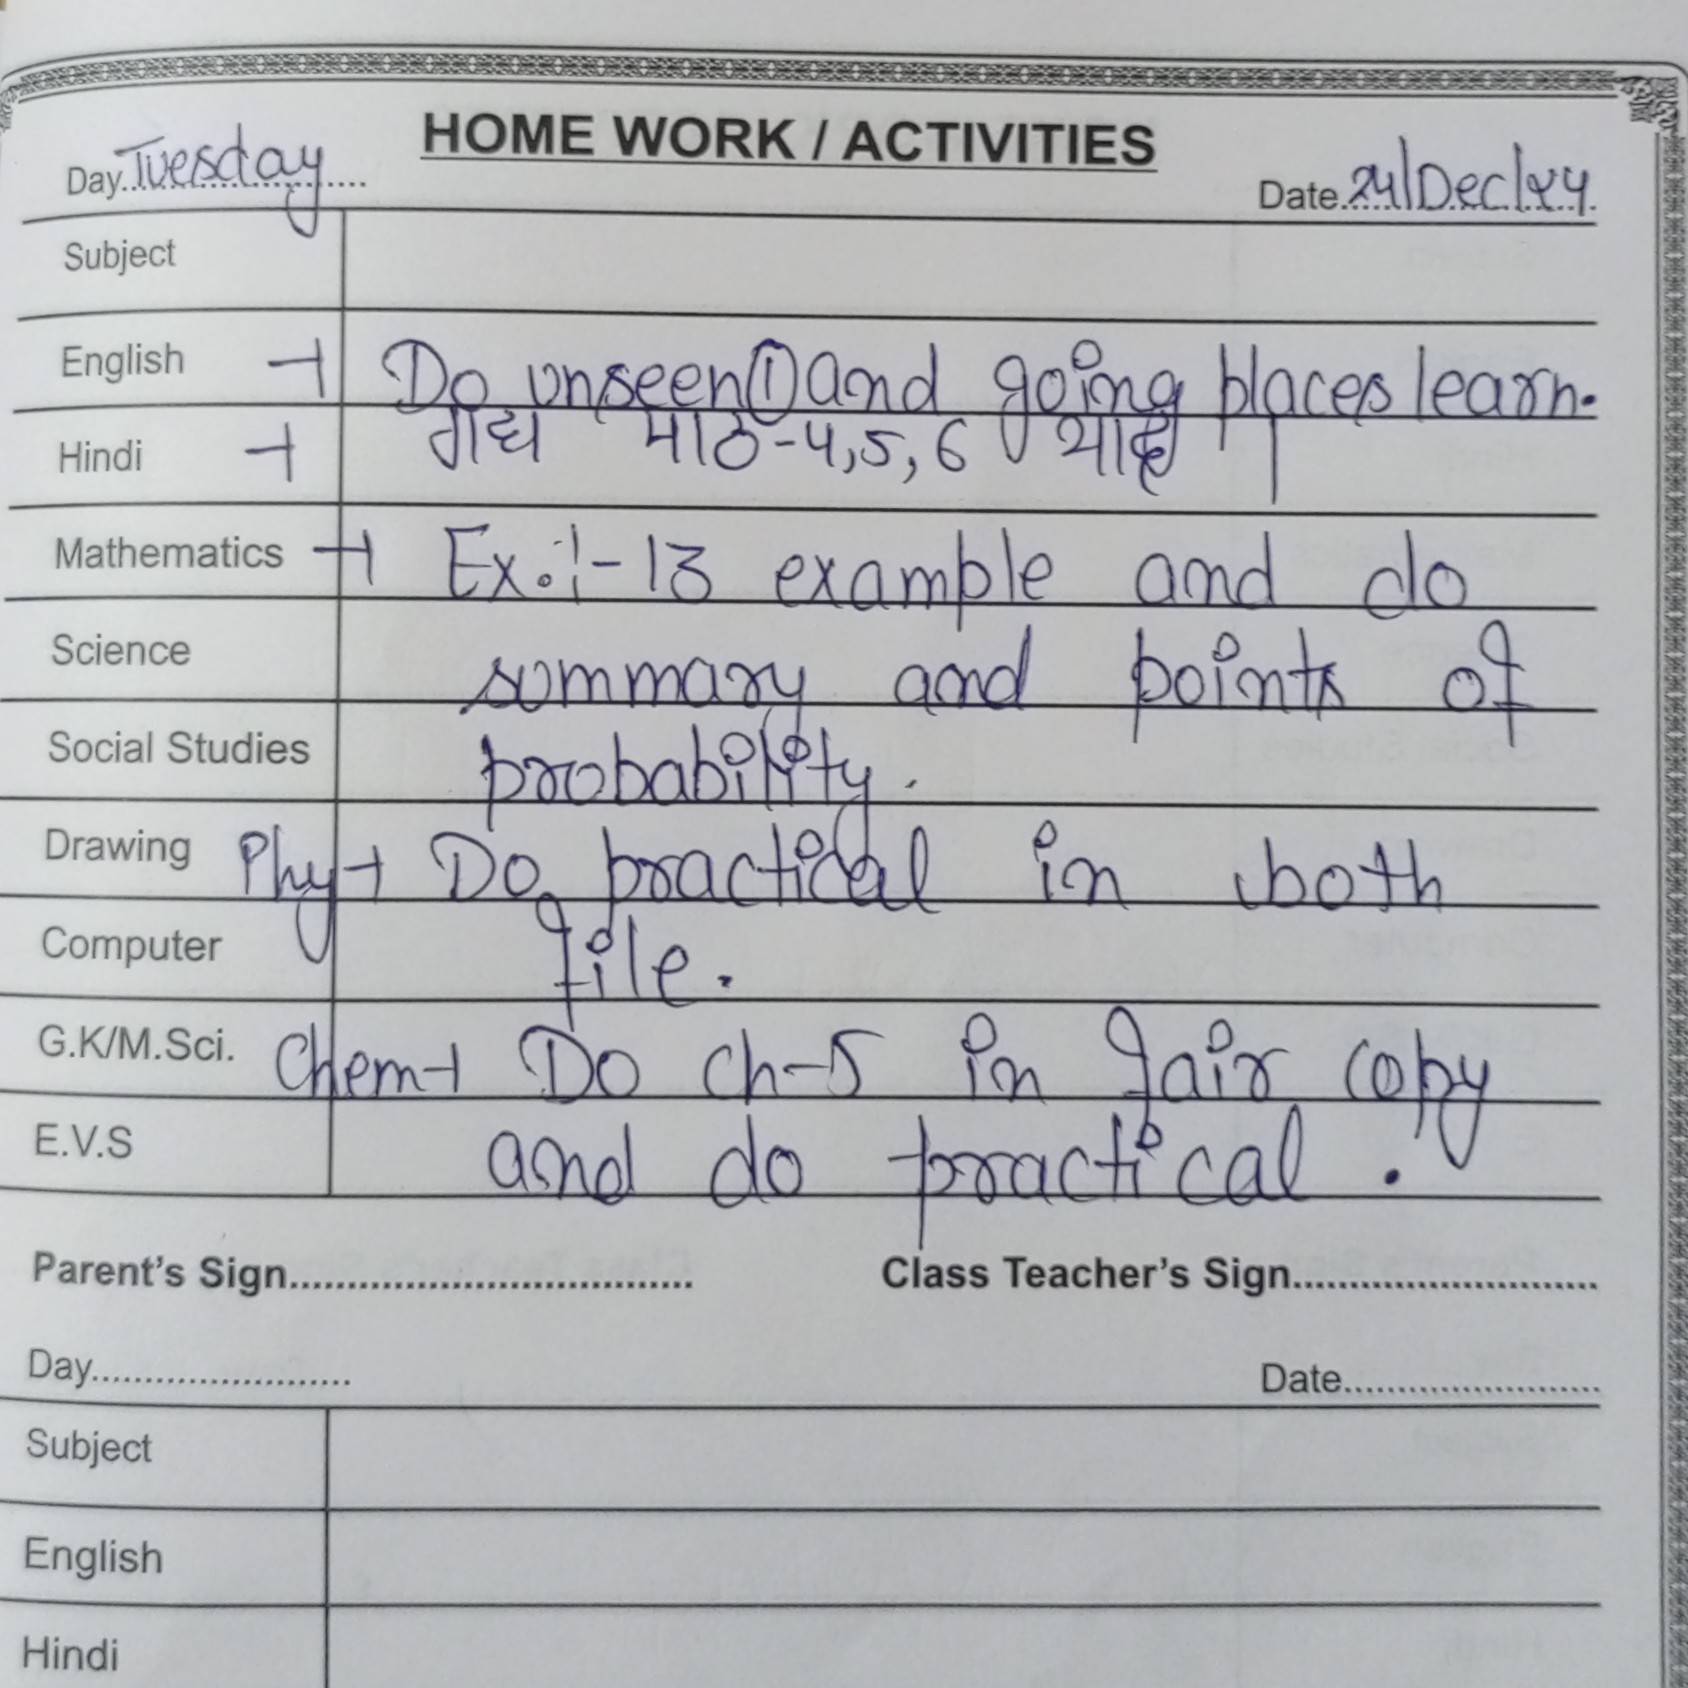 HOME WORK / ACTIVITIES
Day..Tuesday.... Date..24/Dec/24.
Subject
English → Do unseen ① and going places learn.
Hindi → गद्य पाठ-4,5,6 याद
Mathematics → Ex:1-13 example and do
Science summary and points of
Social Studies probability.
Drawing Phy → Do practical in both
Computer file.
G.K/M.Sci. Chem → Do ch-5 in fair copy
E.V.S and do practical.
Parent's Sign.................................. Class Teacher's Sign............................
Day........................ Date........................
Subject
English
Hindi